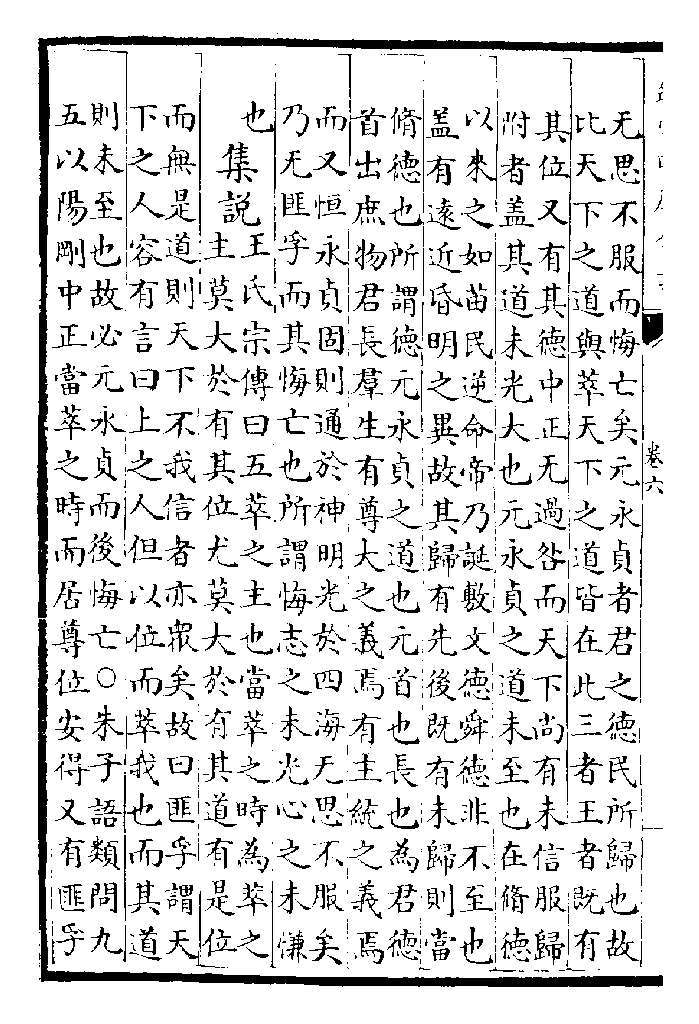 无思不服而悔亡矣元永貞者君之德民所歸也故
比天下之道與萃天下之道皆在此三者王者既有
其位又有其德中正无過咎而天下尚有未信服歸
附者盖其道未光大也元永貞之道未至也在脩德
以來之如苗民逆命帝乃誕敷文德舜德非不至也
盖有遠近昏明之異故其歸有先後既有未歸則當
脩德也所謂德元永貞之道也元首也長也為君德
首出庶物君長羣生有尊大之義焉有主統之義焉
而又恒永貞固則通於神明光於四海无思不服矣
乃无匪孚而其悔亡也所謂悔志之未光心之未慊
也
集説
王氏宗傳曰五萃之主也當萃之時為萃之
主莫大於有其位尤莫大於有其道有是位
而無是道則天下不我信者亦衆矣故曰匪孚謂天
下之人容有言曰上之人但以位而萃我也而其道
則未至也故必元永貞而後悔亡○朱子語類問九
五以陽剛中正當萃之時而居尊位安得又有匪孚
卷六